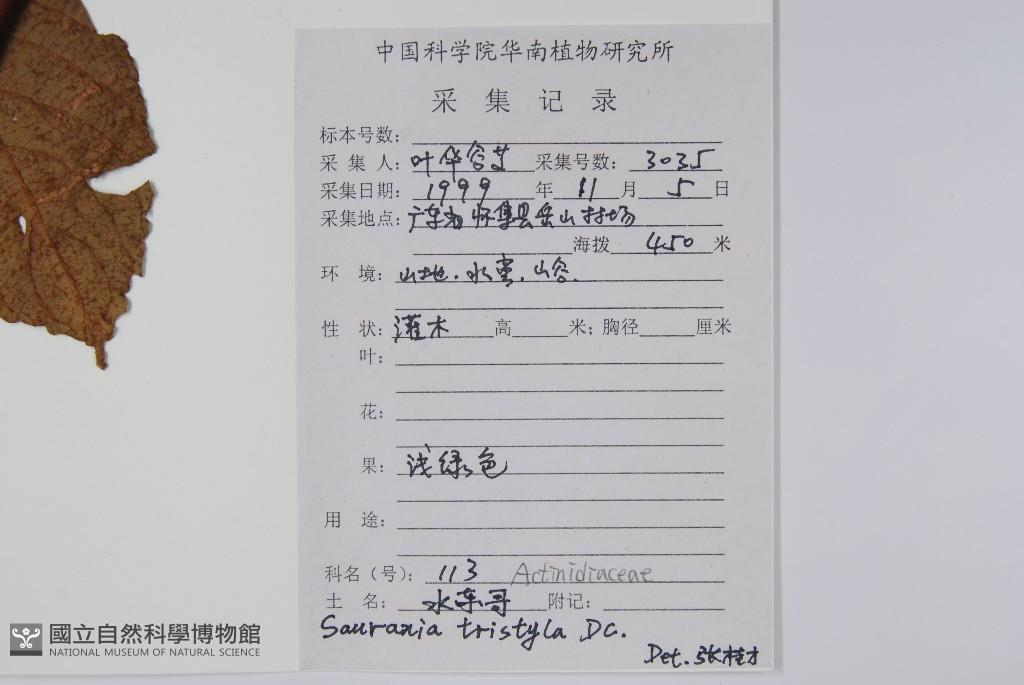 中国科学院华南植物研究所
采集记录
标本号数：
采集人：叶华谷 采集号数：3035
采集日期：1999年11月5日
采集地点：广东省怀集县岳山林场
海拨 450 米
环境：山地.水旁.山谷.
性状：灌木 高 米；胸径 厘米
叶：
花：
果：浅绿色
用途：
科名（号）：113 Actinidiaceae
土名：水东哥 附记：
Saurauia tristyla DC.
Det. 张桂才
國立自然科學博物館
NATIONAL MUSEUM OF NATURAL SCIENCE